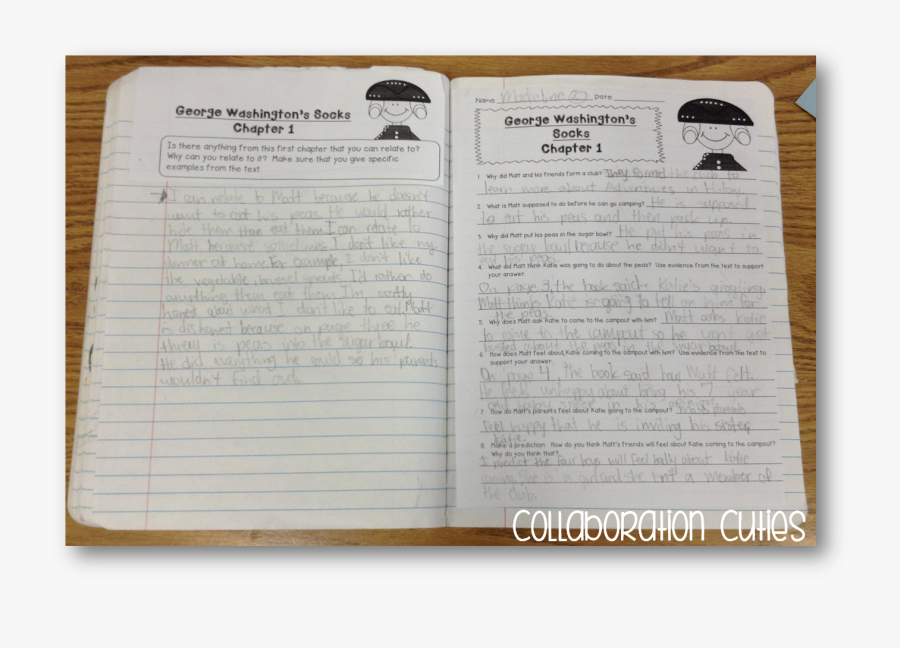 George Washington's Socks
Chapter 1
Is there anything from this first chapter that you can relate to?
Why can you relate to it? Make sure that you give specific
examples from the text.
I can relate to Matt because he doesn't
want to eat his peas. He would rather
hide them than eat them. I can relate to
Matt because sometimes I don't like my
dinner at home. For example, I don't like
the vegetable, brussel sprouts. I'd rather do
anything them eat them. I'm
honest about what I don't like to eat. Matt
is dishonest because on page three he
threw is peas into the sugar bowl.
He did everything he could so his parents
wouldn't find out.
Name Madeline Date
George Washington's
Socks
Chapter 1
1. Why did Matt and his friends form a club? They formed the club to
learn more about Adventures in History.
2. What is Matt supposed to do before he can go camping? He is supposed
to eat his peas and then pack up.
3. Why did Matt put his peas in the sugar bowl? He put his peas in
the sugar bowl because he didn't want to
eat his peas.
4. What did Matt think Katie was going to do about the peas? Use evidence from the text to support
your answer.
On page 3, the book said Katie's giggling.
Matt thinks Katie is going to tell on him for
the peas.
5. Why does Matt ask Katie to come to the campout with him? Matt asks Katie
to come to the campout so he won't get
busted about the peas in the sugar bowl.
6. How does Matt feel about Katie coming to the campout with him? Use evidence from the text to
support your answer.
On page 4, the book said how Matt felt.
He feels unhappy about bring his 7 year
old baby sister in his
7. How do Matt's parents feel about Katie going to the campout? Matt's parents
feel happy that he is inviting his sister,
Katie.
8. Make a prediction. How do you think Matt's friends will feel about Katie coming to the campout?
Why do you think that?
I predict the four boys will feel about Katie
coming. She is a girl and she isn't a member of
the club.
Collaboration Cuties